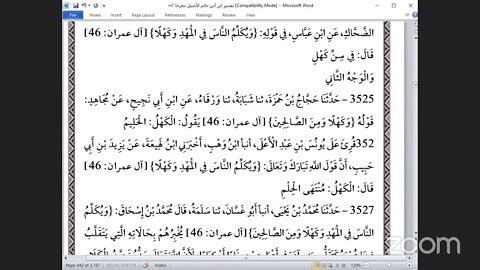 تفسير ابن أبي حاتم الأصيل مخرجا [Compatibility Mode] - Microsoft Word
File Home Insert Page Layout References Mailings Review View
الضَّحَّاكِ، عَنِ ابْنِ عَبَّاسٍ، فِي قَوْلِهِ: {وَيُكَلِّمُ النَّاسَ فِي الْمَهْدِ وَكَهْلًا} [آل عمران: 46]
قَالَ: فِي سِنِّ كَهْلٍ
وَالْوَجْهُ الثَّانِي
3525 - حَدَّثَنَا حَجَّاجُ بْنُ حَمْزَةَ، ثنا شَبَابَةُ، ثنا وَرْقَاءُ، عَنِ ابْنِ أَبِي نَجِيحٍ، عَنْ مُجَاهِدٍ:
قَوْلُهُ {وَكَهْلًا وَمِنَ الصَّالِحِينَ} [آل عمران: 46] يَقُولُ: الْكَهْلُ: الْحَلِيمُ
352قُرِئَ عَلَى يُونُسَ بْنِ عَبْدِ الْأَعْلَى، أنبأ ابْنُ وَهْبٍ، أَخْبَرَنِي ابْنُ لَهِيعَةَ، عَنْ يَزِيدَ بْنِ أَبِي
حَبِيبٍ، أَنَّ قَوْلَ اللَّهِ تَبَارَكَ وَتَعَالَى: {وَيُكَلِّمُ النَّاسَ فِي الْمَهْدِ وَكَهْلًا} [آل عمران: 46]
قَالَ: الْكَهْلُ: مُنْتَهَى الْحِلْمِ
3527 - حَدَّثَنَا مُحَمَّدُ بْنُ يَحْيَى، أنبأ أَبُو غَسَّانَ، ثنا سَلَمَةُ، قَالَ مُحَمَّدُ بْنُ إِسْحَاقَ: {وَيُكَلِّمُ
النَّاسَ فِي الْمَهْدِ وَكَهْلًا وَمِنَ الصَّالِحِينَ} [آل عمران: 46] يُخْبِرُهُمْ بِحَالَاتِهِ الَّتِي يَتَقَلَّبُ
zoom
Page: 642 of 2,787 Arabic 120%